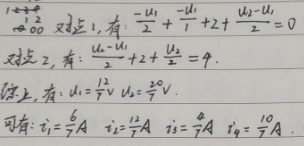 对点1,有: -u₁/2 + -u₁/1 + 2 + u₂-u₁/2 = 0
对点2,有: u₂-u₁/2 + 2 + u₂/2 = 4.
综上,有: u₁ = 12/7 V u₂ = 20/7 V.
可有: i₁ = 6/7 A i₂ = 12/7 A i₃ = 4/7 A i₄ = 10/7 A.